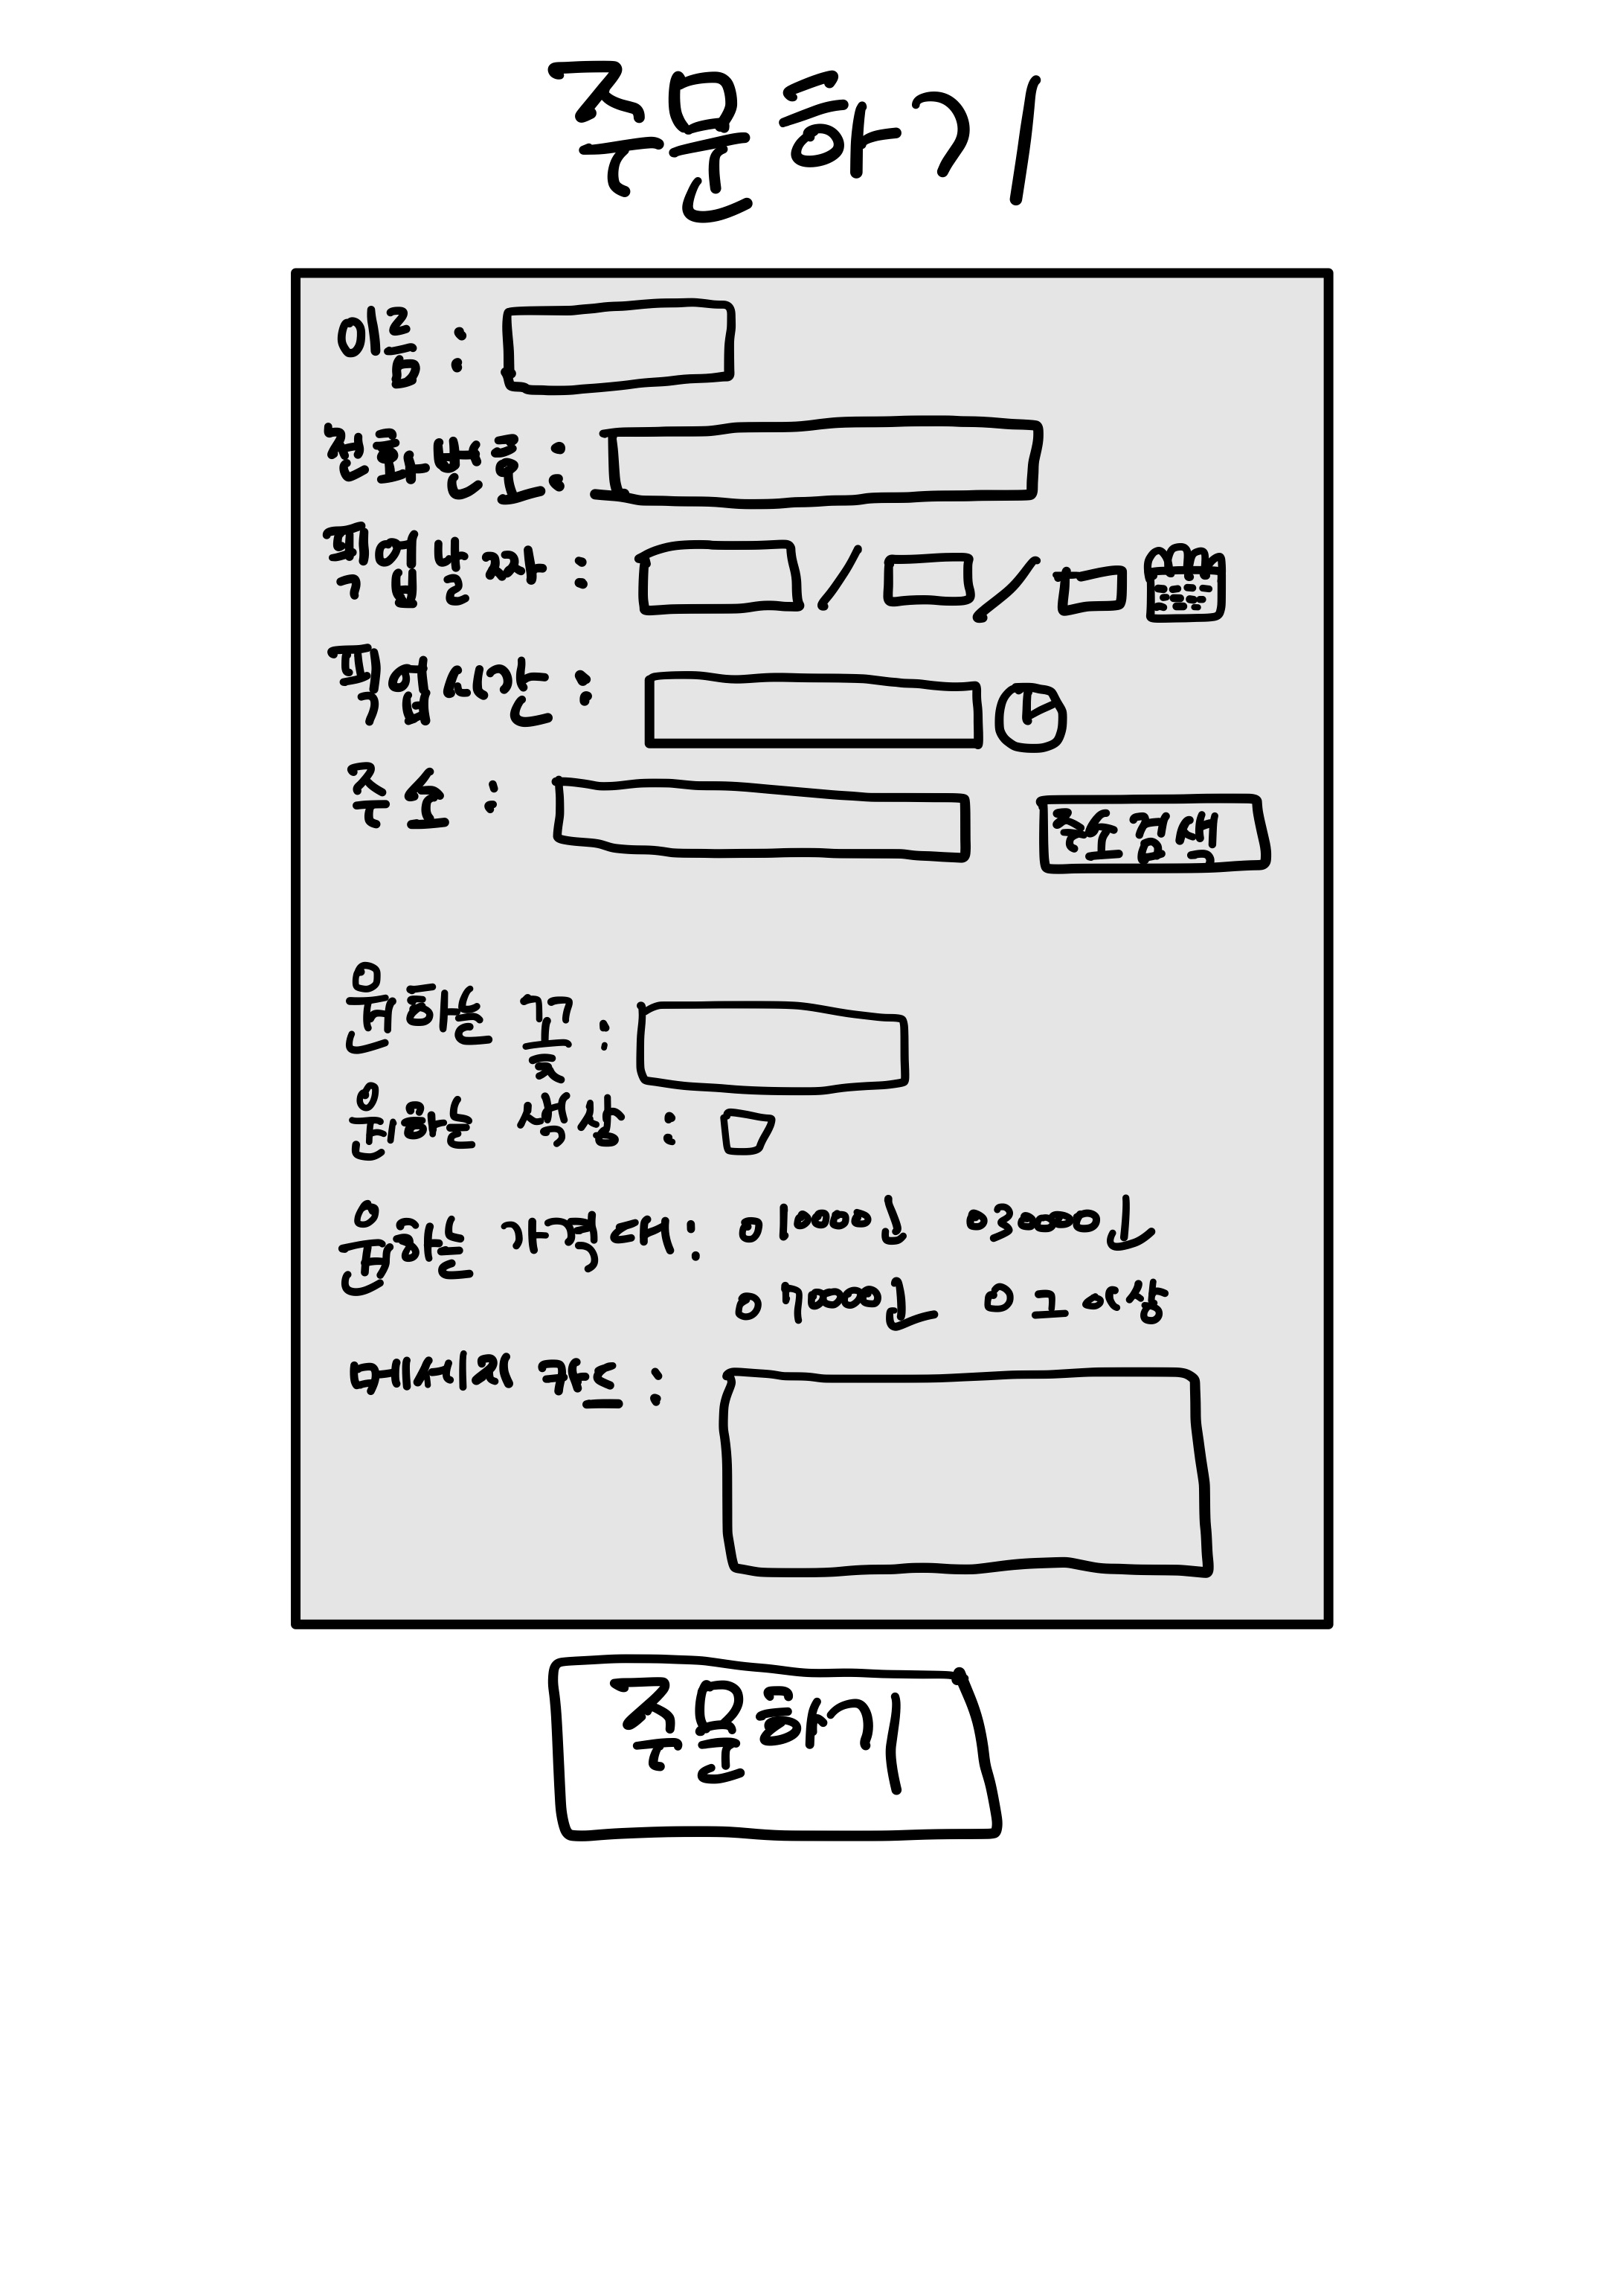 주문하기
이름 :
전화번호 :
픽업날짜 : / /
픽업시간 :
주소 : 주소검색
원하는 꽃 :
원하는 색상 :
원하는 가격대 : ㅇ10000인 ㅇ30000인
ㅇ70000인 ㅇ그 이상
메세지 카드 :
주문하기